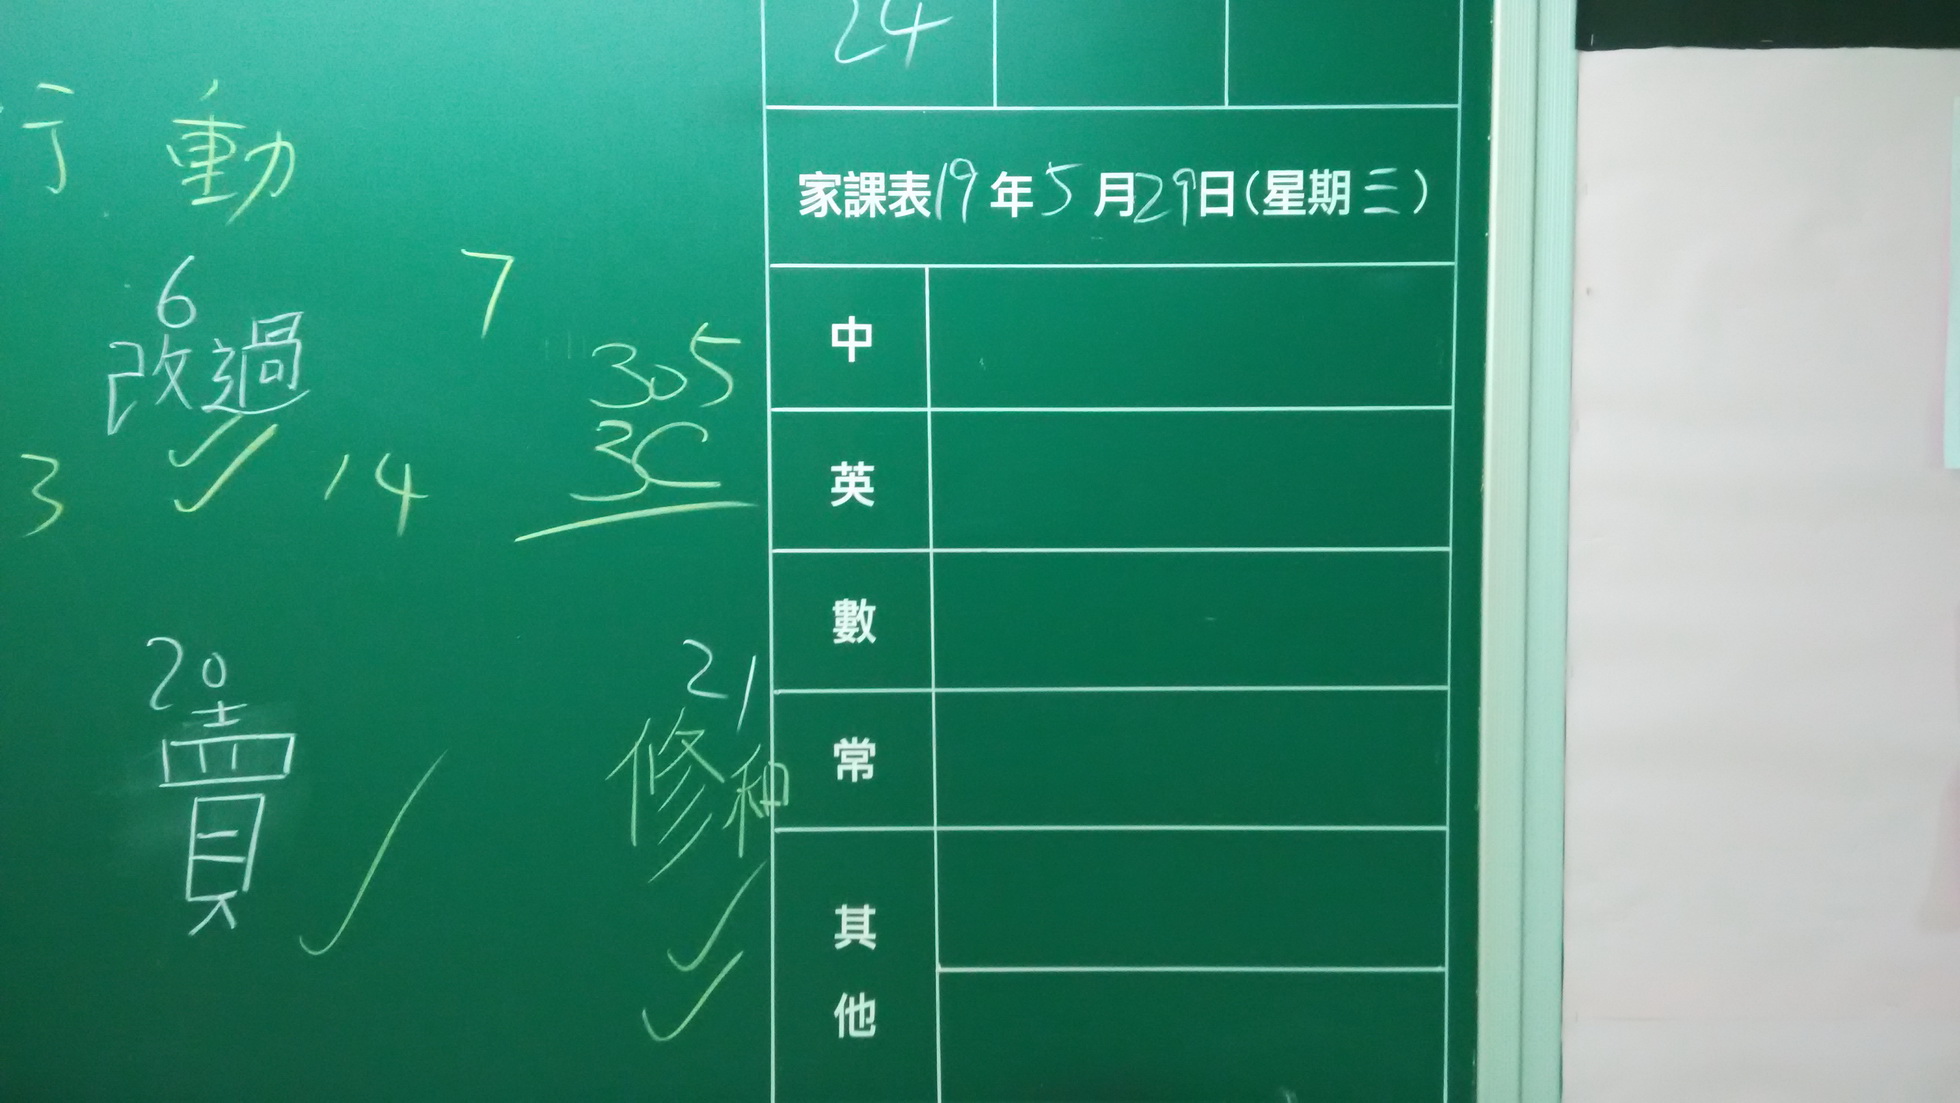 24
行動
家課表19年5月29日(星期三)
6
改過
7
305
3C
3
14
中
英
數
常
其他
20
賣
21
修和